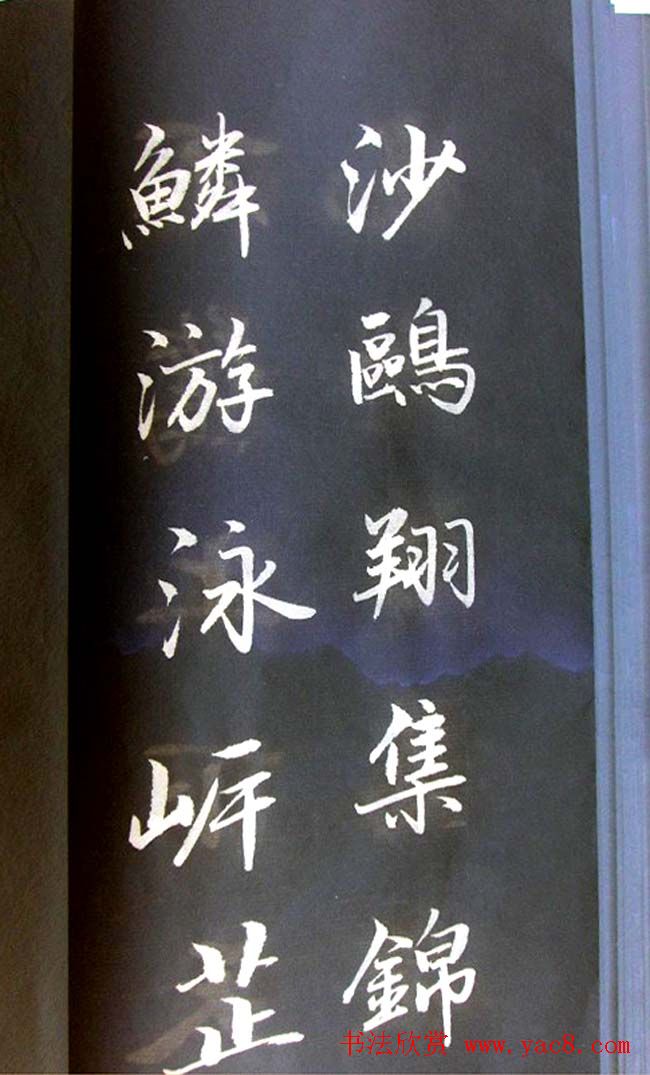 沙鷗翔集錦
鱗游泳岸芷
书法欣赏 www.yac8.com